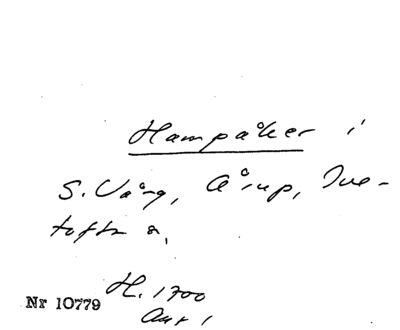 Hampåker i
S. Vång, Åstup, Tve-
tofta s.
H. 1700
Nr 10779